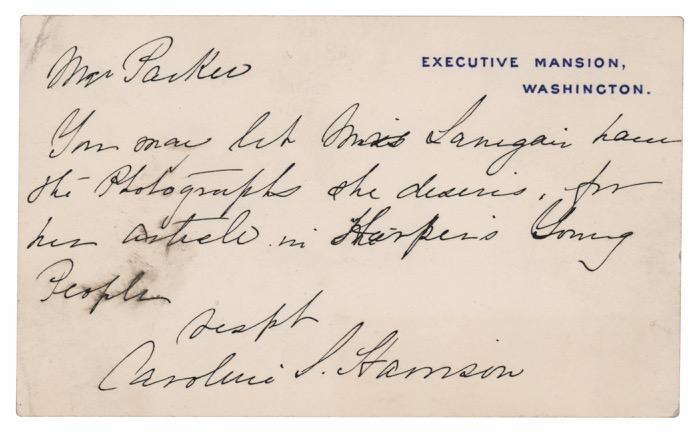 EXECUTIVE MANSION,
WASHINGTON.
Mr Parker
You may let Miss Lanegair have
the Photographs she desires, for
her article in Harper's Young
People
respt
Caroline S. Harrison